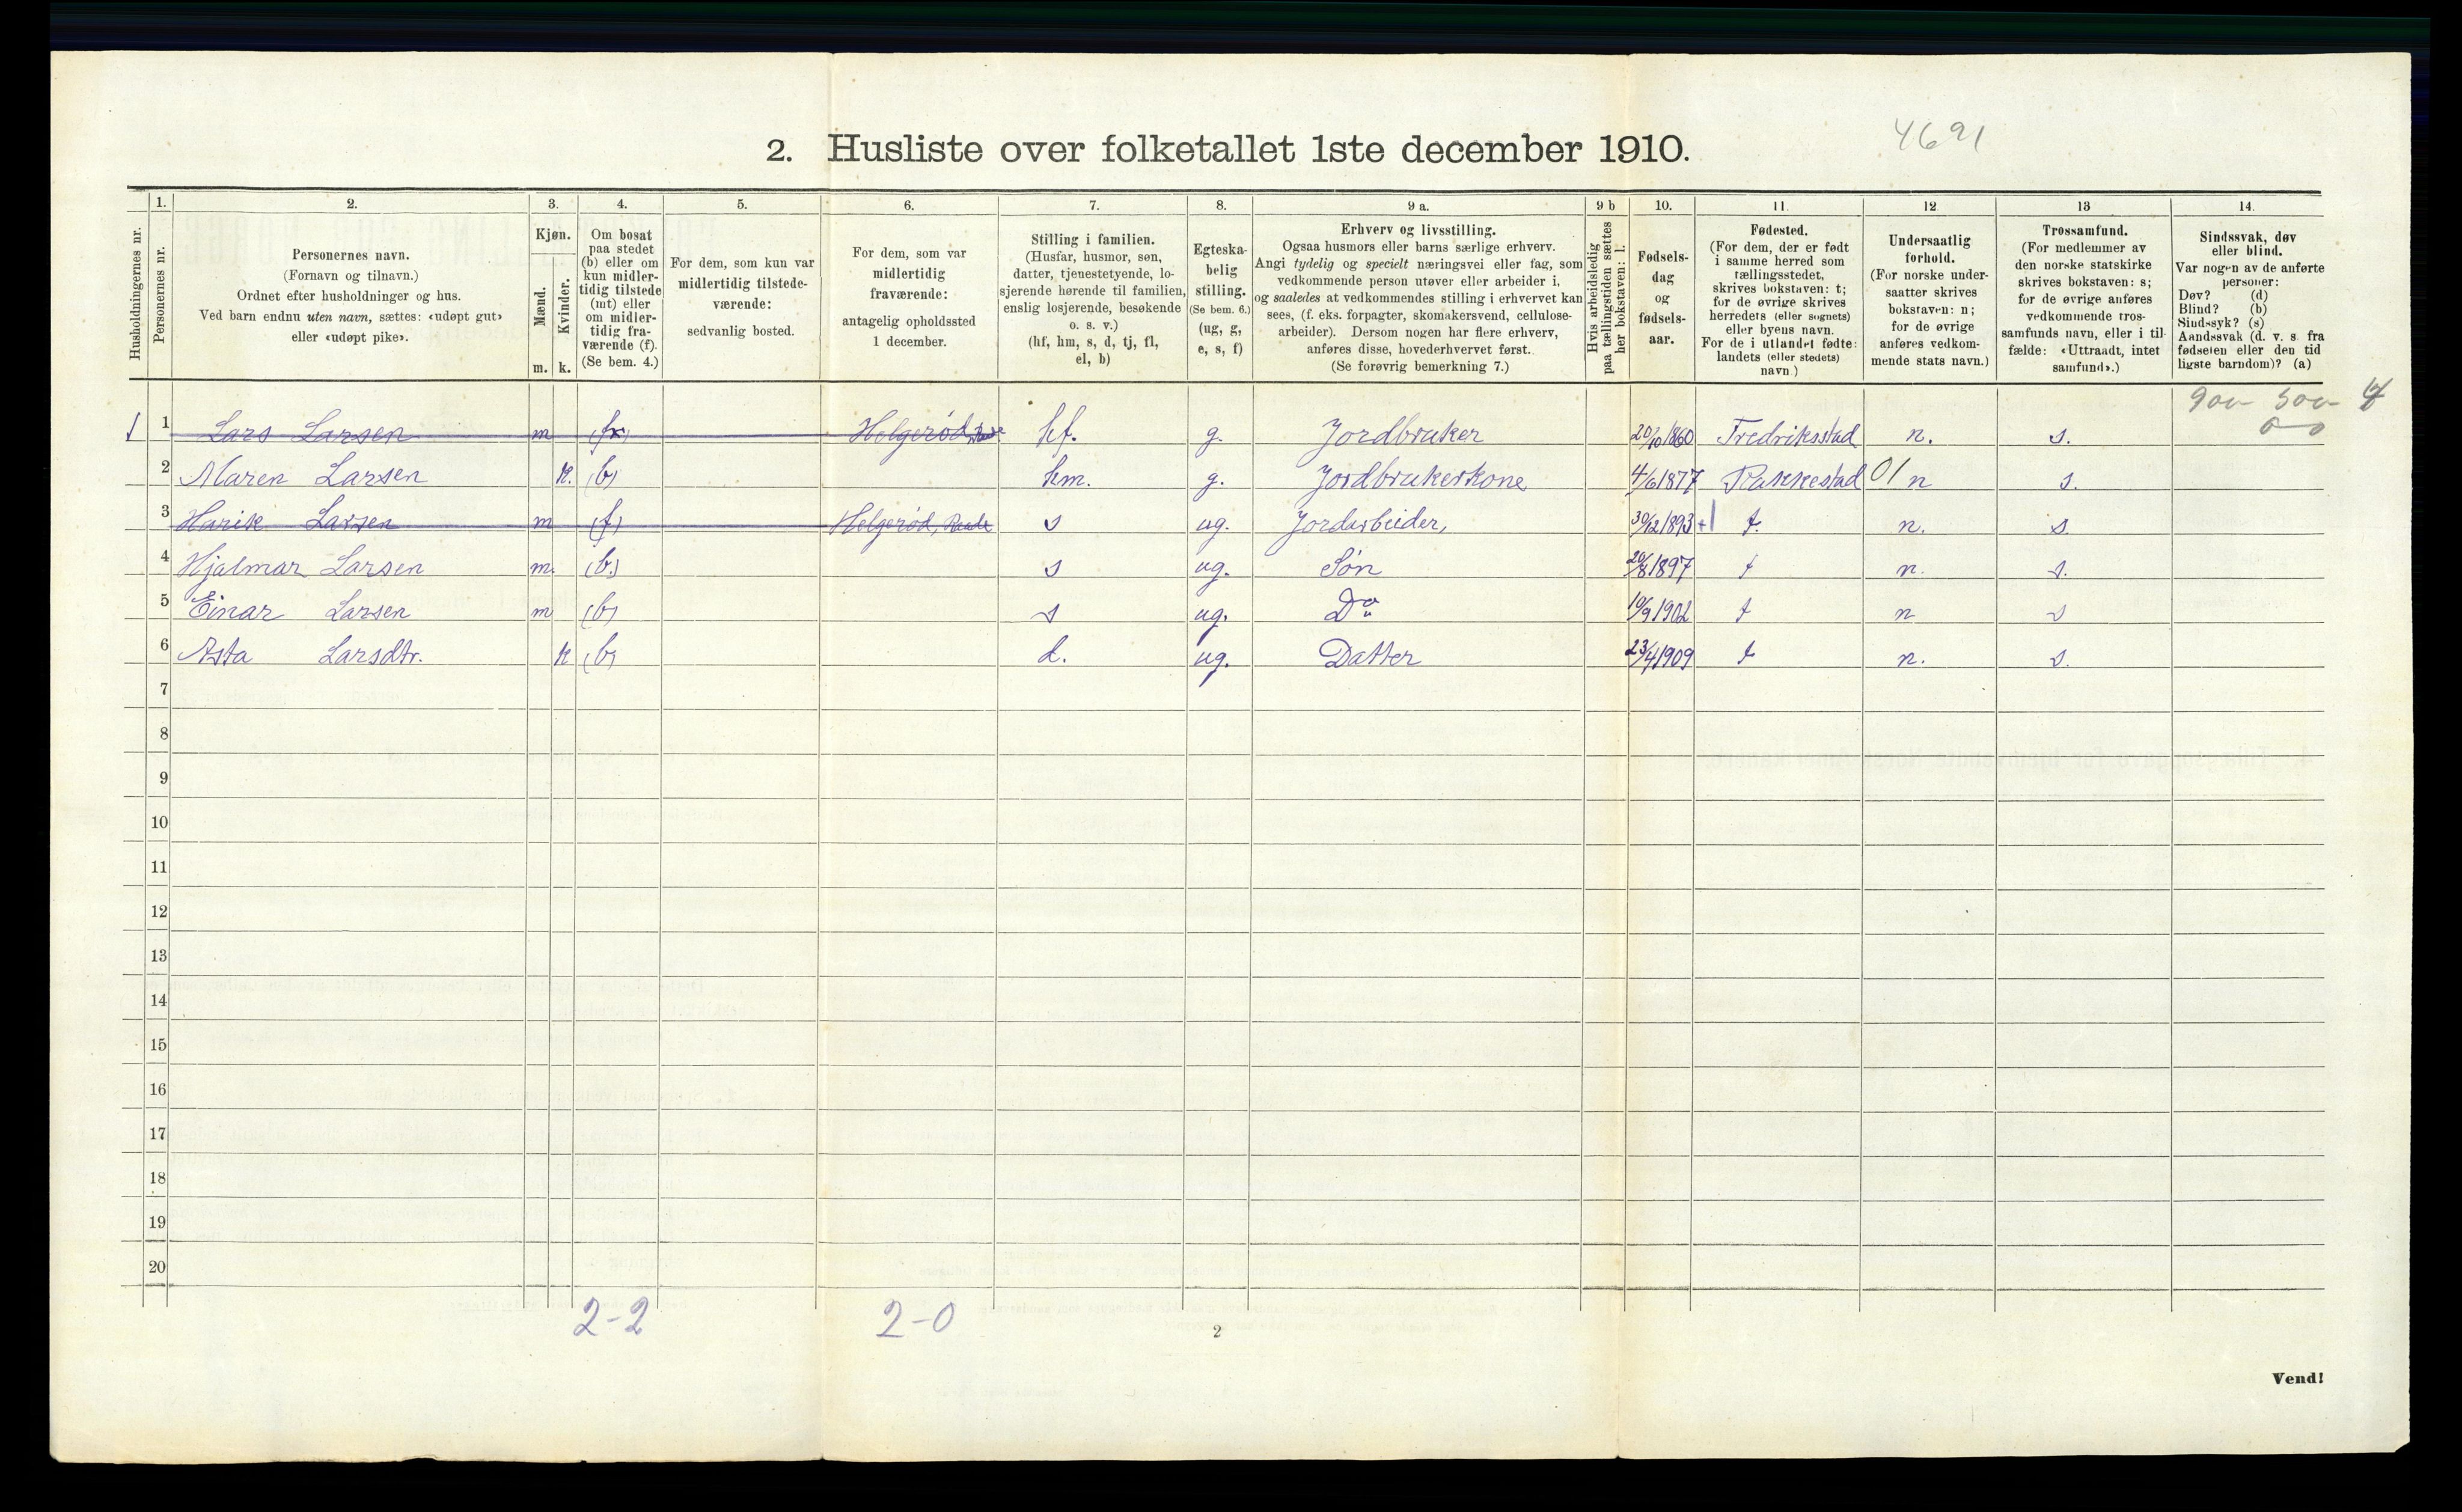 4691
2. Husliste over folketallet 1ste december 1910.
Husholdningernes nr.
1.
Personernes nr.
2.
Personernes navn.
(Fornavn og tilnavn.)
Ordnet efter husholdninger og hus.
Ved barn endnu uten navn, sættes: «udøpt gut»
eller «udøpt pike».
3.
Kjøn.
Mænd.
Kvinder.
m. k.
4.
Om bosat
paa stedet
(b) eller om
kun midler-
tidig tilstede
(mt) eller
om midler-
tidig fra-
værende (f).
(Se bem. 4.)
5.
For dem, som kun var
midlertidig tilstede-
værende:
sedvanlig bosted.
6.
For dem, som var
midlertidig
fraværende:
antagelig opholdssted
1 december.
7.
Stilling i familien.
(Husfar, husmor, søn,
datter, tjenestetyende, lo-
sjerende hørende til familien,
enslig losjerende, besøkende
o. s. v.)
(hf, hm, s, d, tj, fl,
el, b)
8.
Egteska-
belig
stilling.
(Se bem. 6.)
(ug, g,
e, s, f)
9 a.
Erhverv og livsstilling.
Ogsaa husmors eller barns særlige erhverv.
Angi tydelig og specielt næringsvei eller fag, som
vedkommende person utøver eller arbeider i,
og saaledes at vedkommendes stilling i erhvervet kan
sees, (f. eks. forpagter, skomakersvend, cellulose-
arbeider). Dersom nogen har flere erhverv,
anføres disse, hovederhvervet først.
(Se forøvrig bemerkning 7.)
9 b
Hvis arbeidsledig
paa tællingstiden sættes
her bokstaven: l.
10.
Fødsels-
dag
og
fødsels-
aar.
11.
Fødested.
(For dem, der er født
i samme herred som
tællingsstedet,
skrives bokstaven: t;
for de øvrige skrives
herredets (eller sognets)
eller byens navn.
For de i utlandet fødte:
landets (eller stedets)
navn.)
12.
Undersaatlig
forhold.
(For norske under-
saatter skrives
bokstaven: n;
for de øvrige
anføres vedkom-
mende stats navn.)
13
Trossamfund.
(For medlemmer av
den norske statskirke
skrives bokstaven: s;
for de øvrige anføres
vedkommende tros-
samfunds navn, eller i til-
fælde: «Uttraadt, intet
samfund».)
14.
Sindssvak, døv
eller blind.
Var nogen av de anførte
personer:
Døv? (d)
Blind? (b)
Sindssyk? (s)
Aandssvak (d. v. s. fra
fødselen eller den tid-
ligste barndom)? (a)
1 1 Lars Larsen m (f) Helgerød, hf. g. Jordbruker 20/10 1860 Fredriksstad n. s.
2 Maren Larsen k. (b) hm. g. Jordbrukerkone 4/6 1877 Rakkestad 01 n s.
3 Larsen m (f) Helgerød, Raade s ug. Jordarbeider, 30/12 1893 t. n. s.
4 Hjalmar Larsen m. (b.) s ug. Søn 20/8 1897 t n. s.
5 Einar Larsen m (b) s ug. Do 10/9 1902 t n s
6 Asta Larsdtr. k (b) d. ug. Datter 23/4 1909 t n. s.
7
8
9
10
11
12
13
14
15
16
17
18
19
20
2-2 2-0
2
Vend!